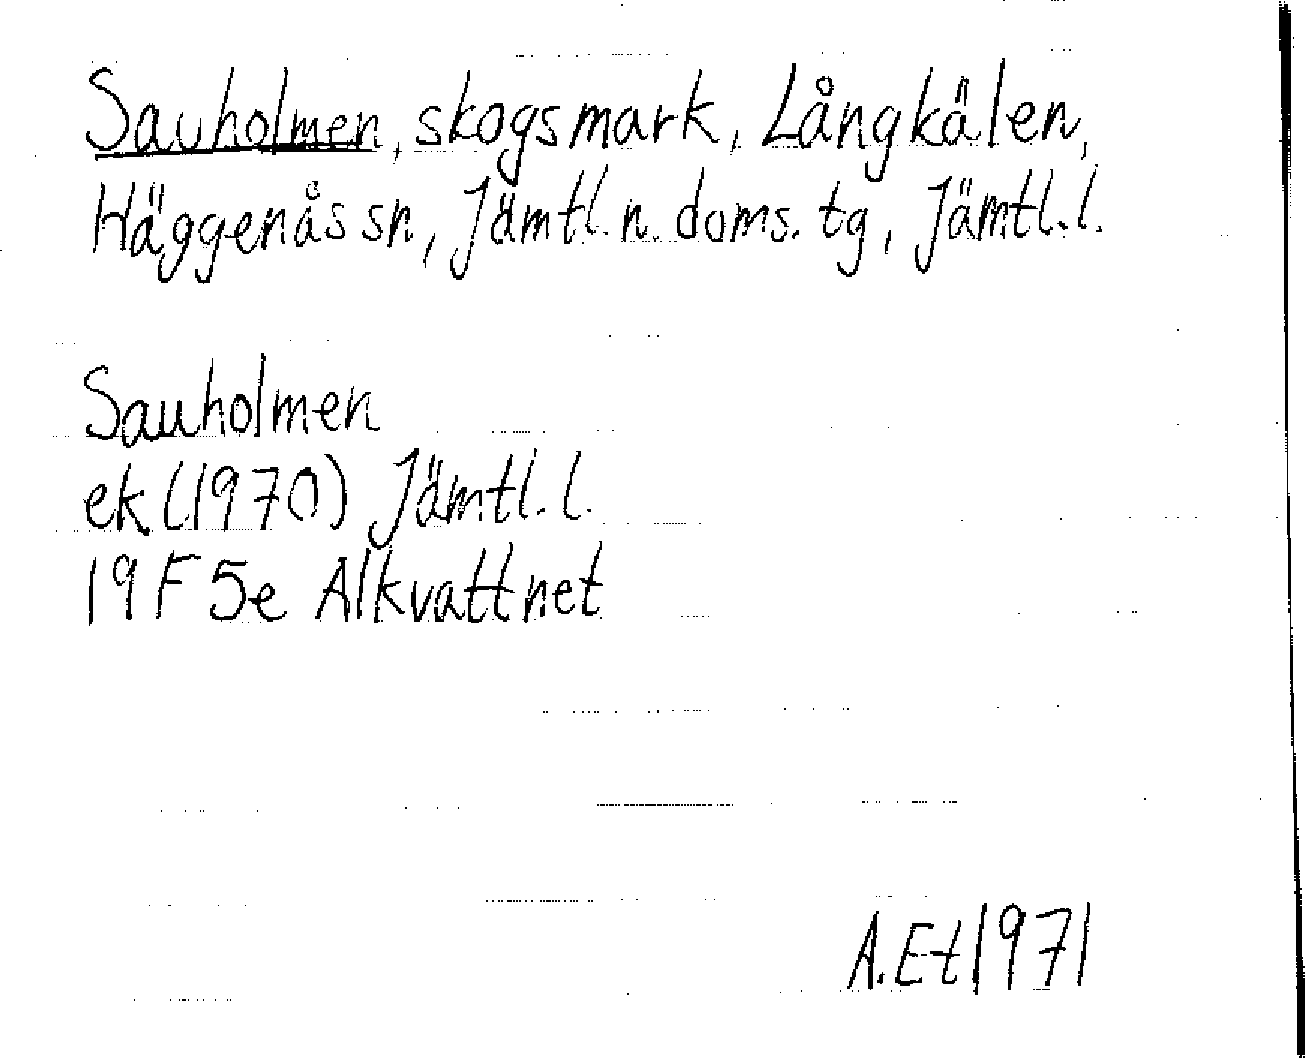 Sauholmen, skogsmark, Långkälen,
Häggenås sn, Jämtl. n. doms. tg, Jämtl. l.
Sauholmen
ek (1970) Jämtl. l.
19F 5e Alkvattnet
A. Et 1971